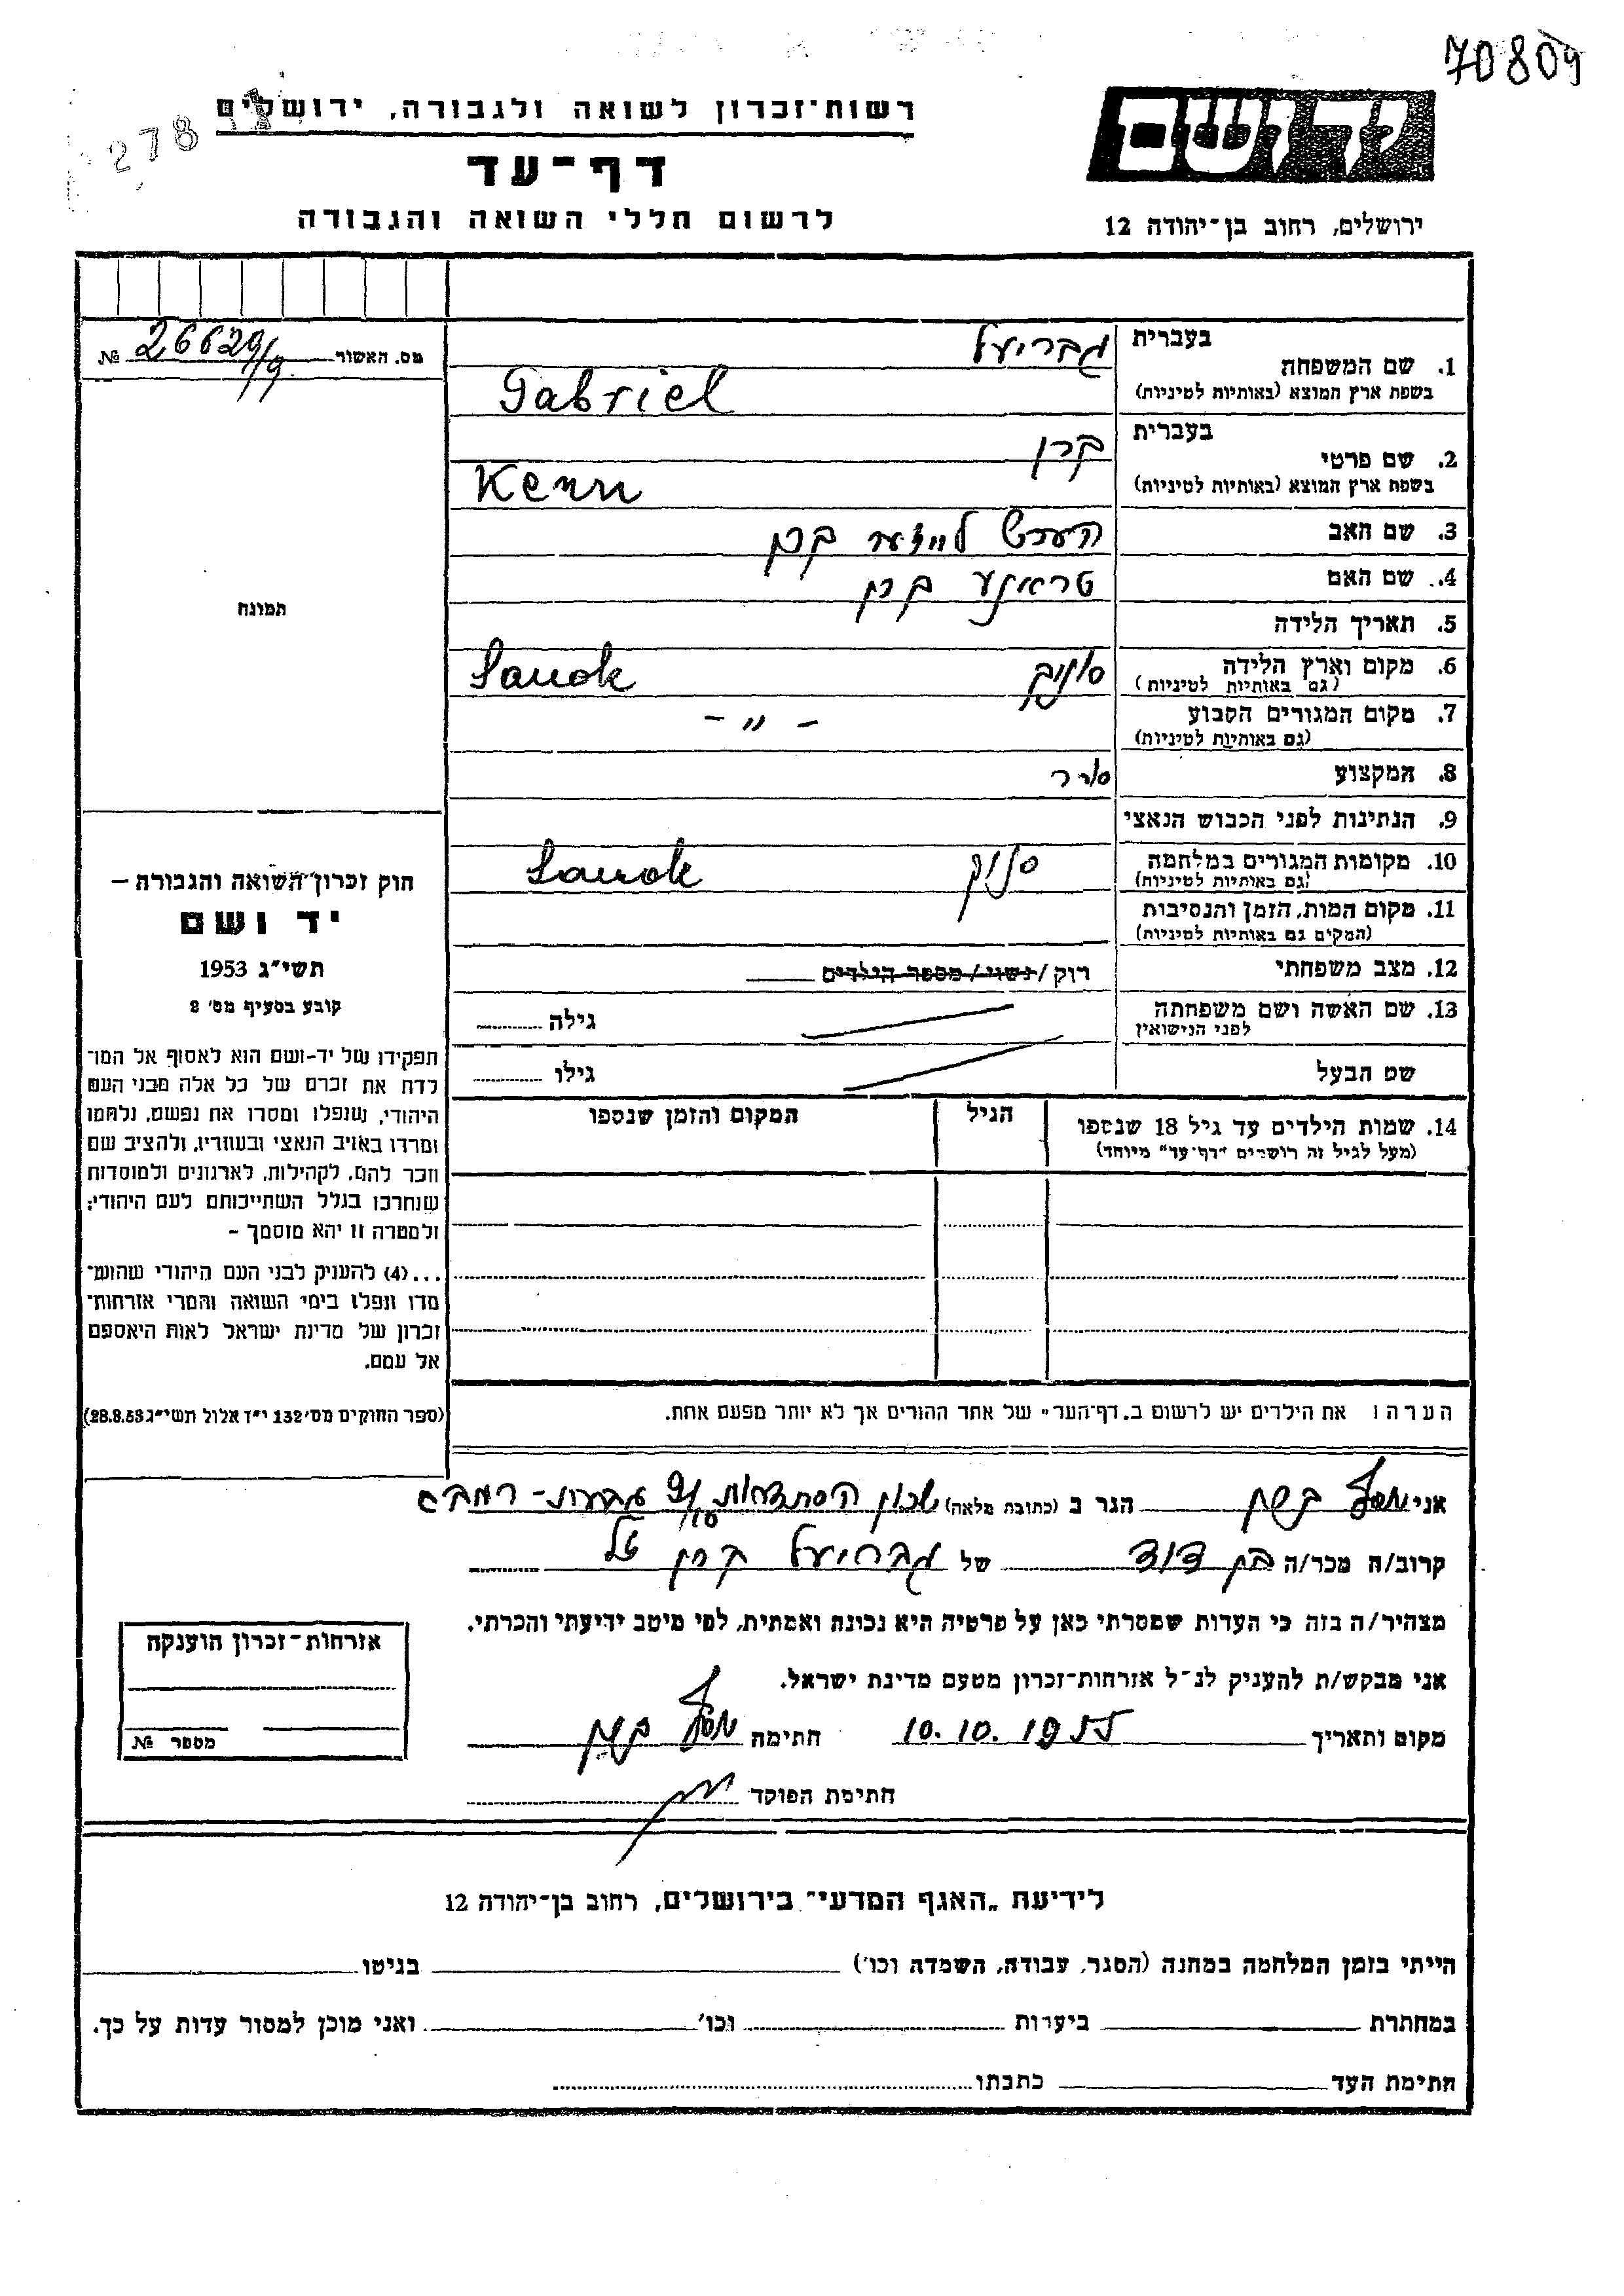 70809
יד ושם
רשות־זכרון לשואה ולגבורה, ירושלים
278
דף־עד
ירושלים, רחוב בן־יהודה 12
לרשום חללי השואה והגבורה
מס. האשור 26629/9 №
בעברית גבריאל
1. שם המשפחה
בשפת ארץ המוצא (באותיות לטיניות) Gabriel
בעברית קרן
2. שם פרטי
בשפת ארץ המוצא (באותיות לטיניות)
3. שם האב הערש לייזער קרן
4. שם האם קרן
תמונה
5. תאריך הלידה
6. מקום וארץ הלידה סנוק Sanok
(גם באותיות לטיניות)
7. מקום המגורים הקבוע - " -
(גם באותיות לטיניות)
8. המקצוע
9. הנתינות לפני הכבוש הנאצי
10. מקומות המגורים במלחמה סנוק Sanok
(גם באותיות לטיניות)
11. מקום המות, הזמן והנסיבות
(המקום גם באותיות לטיניות)
12. מצב משפחתי רוק / נשוי / מספר הילדים
13. שם האשה ושם משפחתה גילה
לפני הנישואין
שם הבעל גילו
14. שמות הילדים עד גיל 18 שנספו הגיל המקום והזמן שנספו
(מעל לגיל זה רושמים "דף־עד" מיוחד)
חוק זכרון־השואה והגבורה –
יד ושם
תשי"ג 1953
קובע בסעיף מס' 2
תפקידו של יד-ושם הוא לאסוף אל המו־
לדת את זכרם של כל אלה מבני העם
היהודי, שנפלו ומסרו את נפשם, נלחמו
ומרדו באויב הנאצי ובעוזריו, ולהציב שם
וזכר להם, לקהילות, לארגונים ולמוסדות
שנחרבו בגלל השתייכותם לעם היהודי;
ולמטרה זו יהא מוסמך –
...(4) להעניק לבני העם היהודי שהושמ־
מדו ונפלו בימי השואה והמרי אזרחות־
זכרון של מדינת ישראל לאות היאספם
אל עמם.
(ספר החוקים מס' 132 י"ז אלול תשי"ג 28.8.53)
הערה: את הילדים יש לרשום ב"דף־העד" של אחד ההורים אך לא יותר מפעם אחת.
אני הגר ב (כתובת מלאה) שכון
קרוב/ה מכר/ה בן דוד של גבריאל קרן
מצהיר/ה בזה כי העדות שמסרתי כאן על פרטיה היא נכונה ואמתית, לפי מיטב ידיעתי והכרתי.
אני מבקש/ת להעניק לנ"ל אזרחות־זכרון מטעם מדינת ישראל.
מקום ותאריך 10.10.1955 חתימה
חתימת הפוקד
אזרחות־זכרון הוענקה
מספר №
לידיעת "האגף המדעי" בירושלים, רחוב בן־יהודה 12
הייתי בזמן המלחמה במחנה (הסגר, עבודה, השמדה וכו') בגיטו
במחתרת ביערות וכו' ואני מוכן למסור עדות על כך.
חתימת העד כתבתו